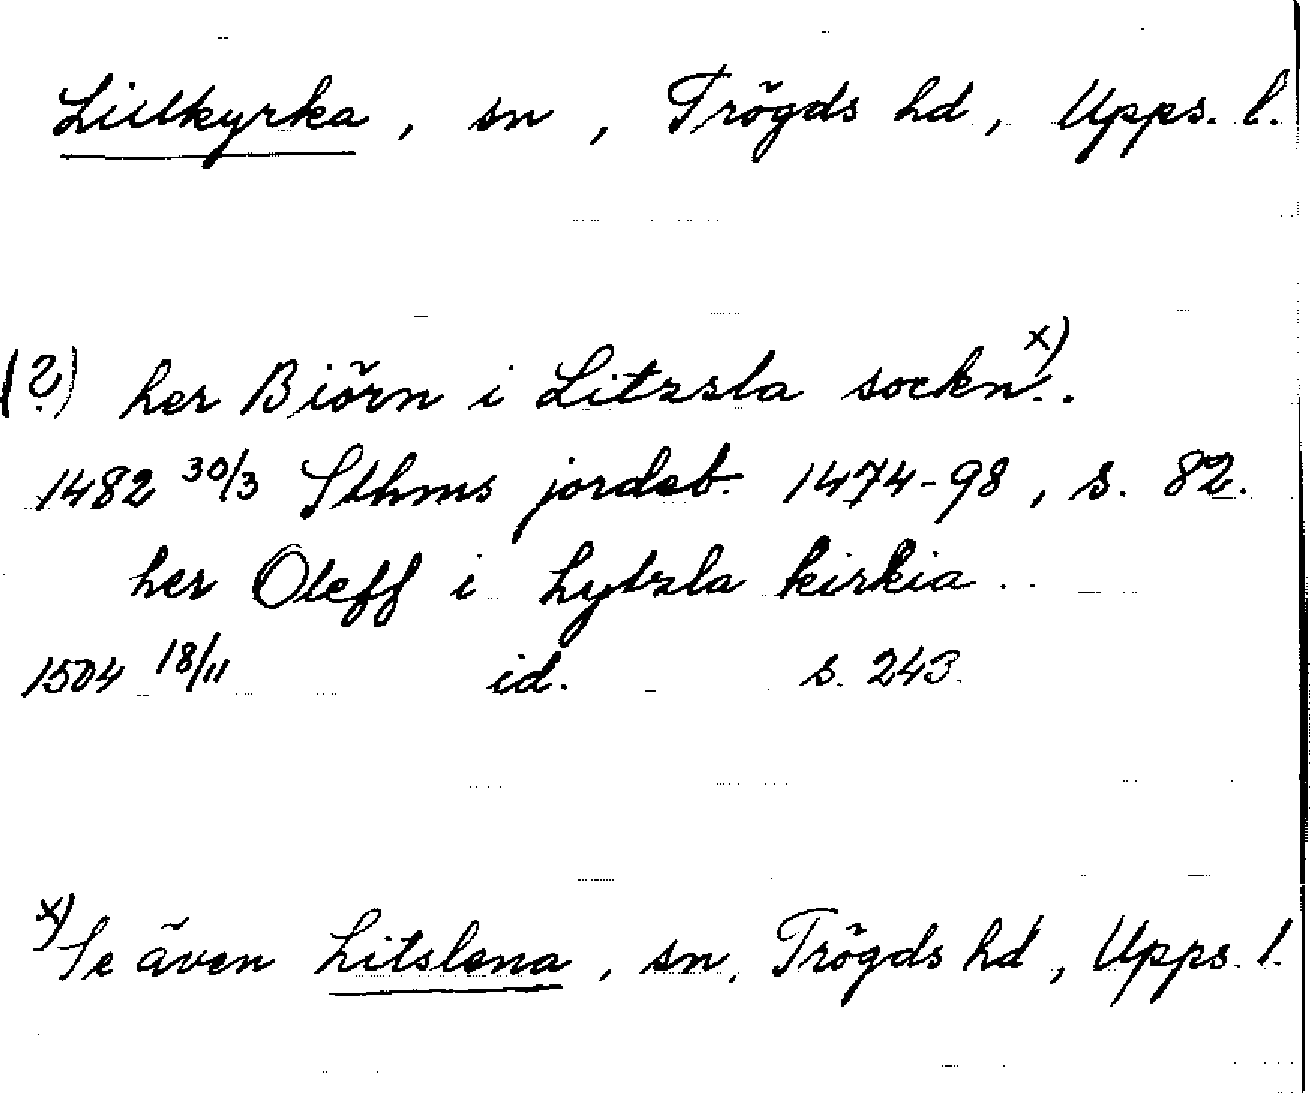 Lillkyrka, sn, Trögds hd, Upps. l.
(?) her Biörn i Litzsla sockn x)..
1482 30/3 Sthms jordeb. 1474-98, s. 82.
her Oleff i Lytzla kirkia ..
1504 18/11 id. s. 243.
x) Se även Litslena, sn, Trögds hd, Upps. l.